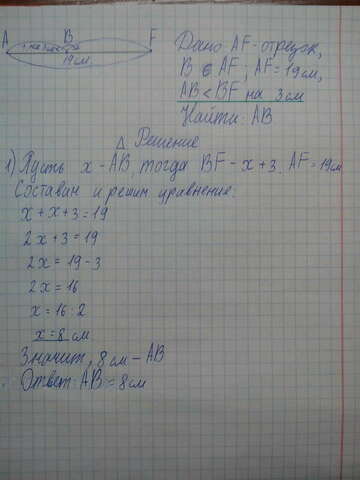 A B F
19 см
Дано AF-отрезок,
B ∈ AF; AF = 19 см,
AB < BF на 3 см
Найти: AB
Решение
1) Пусть x - AB, тогда BF - x + 3, AF = 19 см
Составим и решим уравнение:
x + x + 3 = 19
2x + 3 = 19
2x = 19 - 3
2x = 16
x = 16 : 2
x = 8 см
Значит, 8 см - AB
Ответ: AB = 8 см